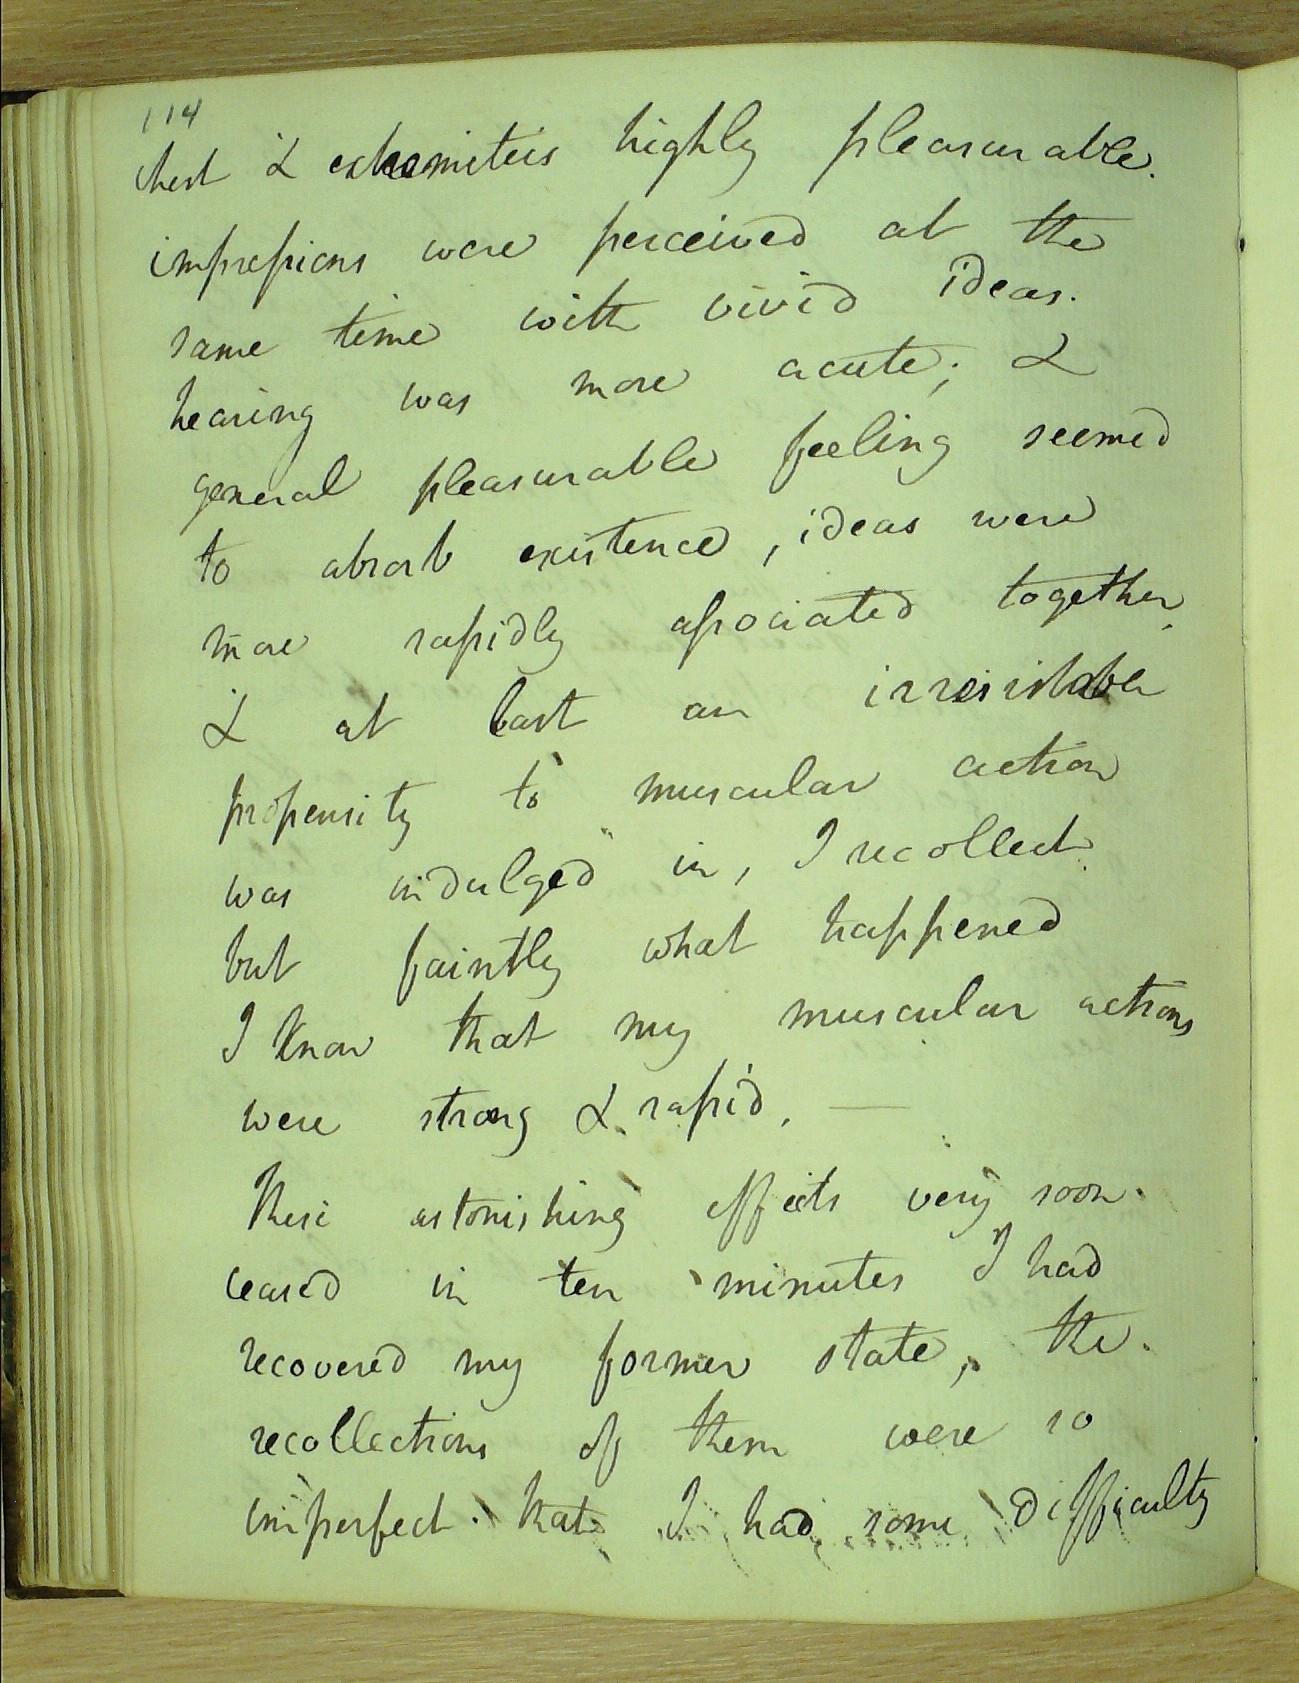 114
chest & extremiteis highly pleasurable.
impressions were perceived at the
same time with vivid ideas.
hearing was more acute; &
general pleasurable feeling seemed
to absorb existence, ideas were
more rapidly associated together,
& at last an irresistable
propensity to muscular action
was indulged in, I recollect
but faintly what happened
I know that my muscular actions
were strong & rapid. —
These astonishing effects very soon.
ceased in ten minutes I had
recovered my former state, the.
recollections of them were so
imperfect. that I had some difficulty